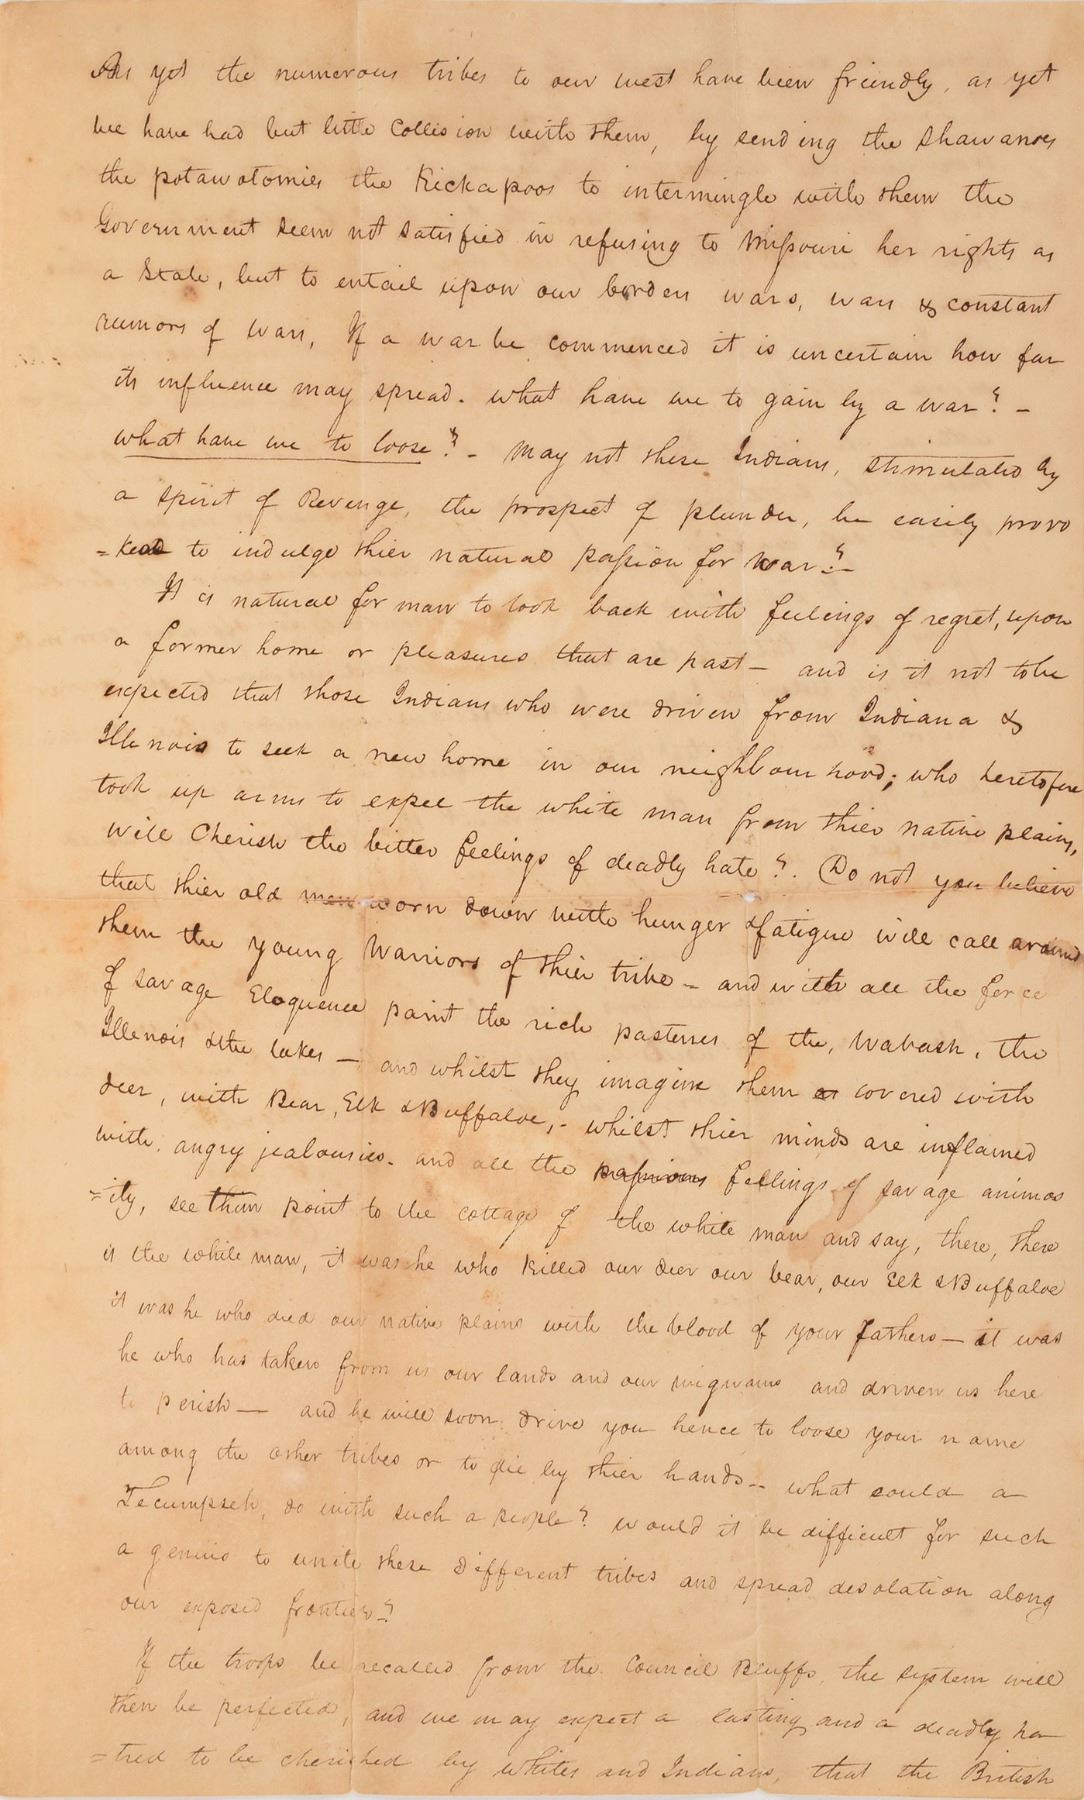 As yet the numerous tribes to our west have been friendly, as yet
we have had but little Collision with them, by sending the Shawanoes
the potawotomies the Kickapoos to intermingle with them the
Government seem not satisfied in refusing to Missouri her rights as
a State, but to entail upon our borders wars, wars & constant
rumors of wars, If a war be commenced it is uncertain how far
its influence may spread. what have we to gain by a war? –
what have we to loose? – May not these Indians, stimulated by
a spirit of Revenge, the prospect of plunder, be easily provo
=ked to indulge thier natural passion for war? –
It is natural for man to look back with feelings of regret, upon
a former home or pleasures that are past – and is it not to be
expected that those Indians who were driven from Indiana &
Illenois to seek a new home in our neighbourhood; who heretofore
took up arms to expel the white man from thier native plains,
will Cherish the bitter feelings of deadly hate?. Do not you believe
that thier old men worn down with hunger & fatigue will call around
them the young Warriors of thier tribe – and with all the force
of savage Eloquence paint the rich pastures of the, Wabash, the
Illenois & the lakes – and whilst they imagine them as covered with
deer, with Bear, Elk & Buffaloe, – whilst thier minds are inflamed
with angry jealousies. and all the passions feelings of savage animos
=ity, see them point to the cottage of the white man and say, there, there
is the white man, it was he who killed our deer our bear, our Elk & Buffaloe
it was he who died our native plains with the blood of your fathers – it was
he who has taken from us our lands and our wigwams and driven us here
to perish – and he will soon drive you hence to loose your name
among the other tribes or to die by thier hands – what could a
Tecumpseh, do with such a people? would it be difficult for such
a genius to unite these different tribes and spread desolation along
our exposed frontier?
If the troops be recalled from the Council Bluffs, the system will
then be perfected, and we may expect a lasting and a deadly ha
=tred to be cherished by whites and Indians, that the British